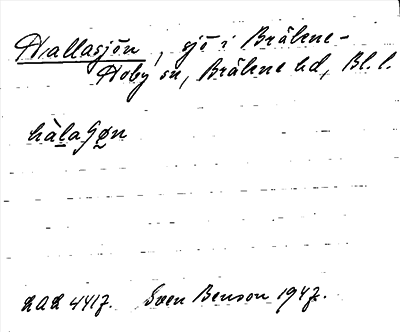 Hallasjön, sjö i Bräkne-
Hoby sn, Bräkne hd, Bl. l.
hàlaʃøn
LAL 4417. Sven Benson 1947.